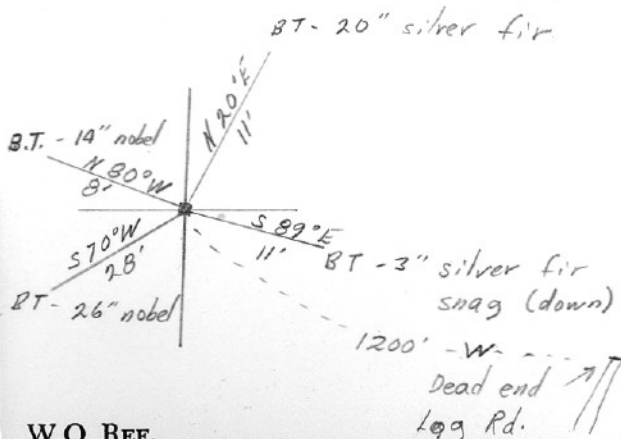 BT - 20" silver fir
N 20°E
11'
B.T. - 14" nobel
N 80°W
8'
S 89°E
11'
BT - 3" silver fir
snag (down)
S 70°W
28'
BT - 26" nobel
1200' - W -
Dead end
Log Rd.
W.O. REF.